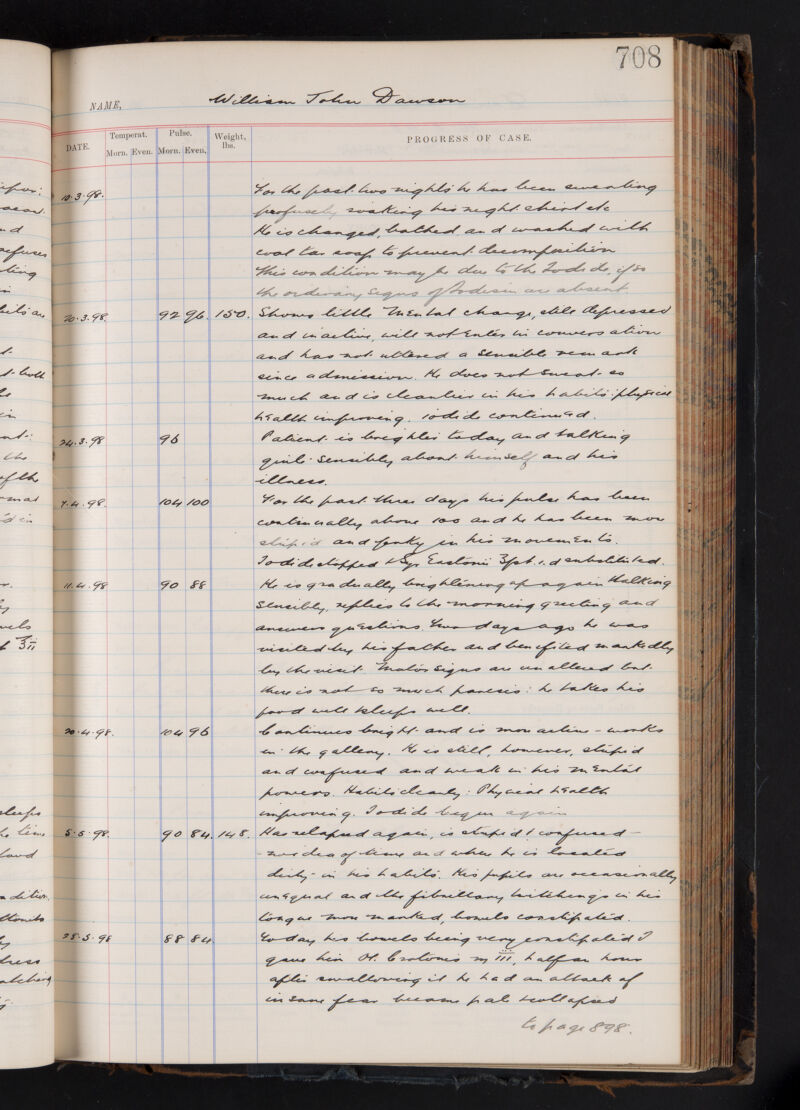 708
NAME, William John Dawson
DATE. Temperat. Pulse. Weight, lbs. PROGRESS OF CASE.
Morn. Even. Morn. Even.
10.3.98. For the past two nights he has been sweating
profusely soaking his night shirt etc
He is changed, bathed and washed with
coal tar soap to prevent decomposition
This condition may be due to the Iodide, if so
the ordinary signs of Iodism are absent
20.3.98. 92 96. 150. Shows little mental change, still depressed
and inactive, will not enter in conversation
and has not uttered a sensible remark
since admission. He does not sweat so
much and is cleanlier in his habits: physical
health improving. iodide continued.
24.3.98 96 Patient is brighter today and talking
quite sensibly about himself and his
illness.
7.4.98. 104 100 For the past three days his pulse has been
continually above 100 and he has been more
stupid and jerky in his movements.
Iodide stopped & Syr Eastonii substituted.
11.4.98 90 88 He is gradually brightening up again & talking
sensibly, replies to the morning greeting and
answers questions. days ago he was
visited by his father and benefited markedly
by the visit. Motor signs are unaltered but
there is not so much paresis: he takes his
food well & sleeps well.
20.4.98. 104 96 Continues bright and is more active – works
in the gallery. He is still, however, stupid
and confused and weak in his mental
powers. Habits cleanly: Physical health
improving. Iodide begun again
5.5.98. 90 84. 148. Has relapsed again, is stupid & confused –
– no idea of time and where he is located
dirty in his habits. His pupils are occasionally
unequal and the fibrillary twitchings in his
tongue more marked, bowels constipated.
28.5.98 88 84. Today his bowels being very constipated I
gave him Ol. Crotonis m III, half an hour
after swallowing it he had an attack of
insane fear became pale & collapsed
to page 898.